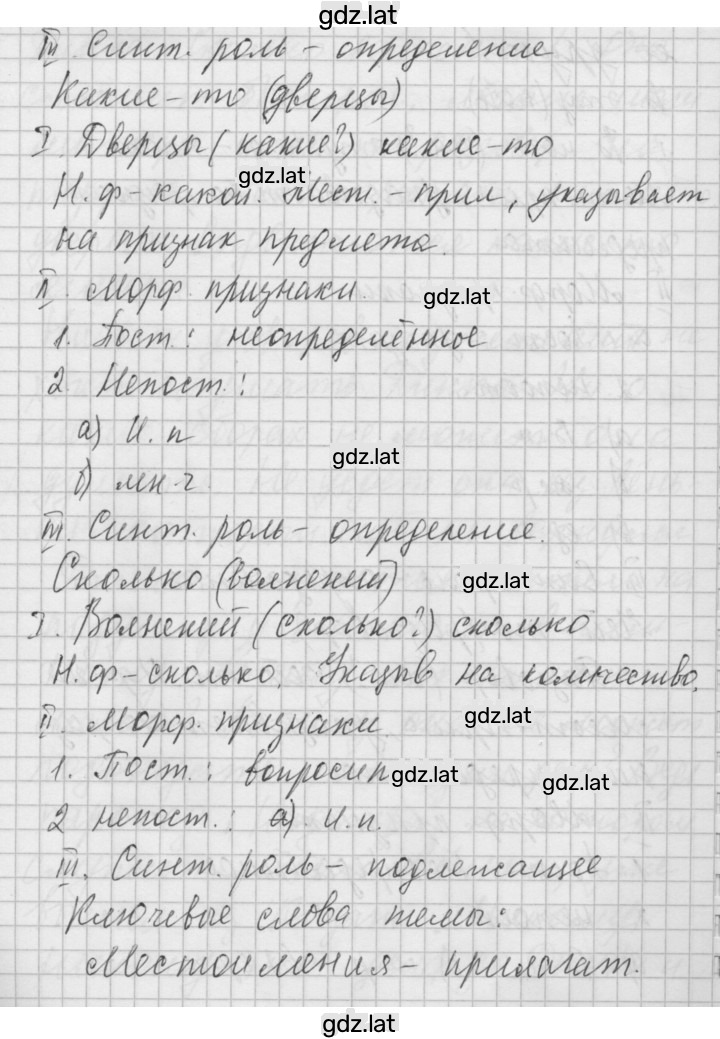 gdz.lat
III. Синт. роль – определение
Какие-то (дверцы)
I. Дверцы (какие?) какие-то
gdz.lat
Н.ф – какой. Мест. – прил, указывает
на признак предмета.
II. Морф. признаки.
gdz.lat
1. Пост.: неопределённое
2. Непост.:
а) И.п
gdz.lat
б) мн.ч.
III. Синт. роль – определение.
Сколько (волнений)
gdz.lat
I. Волнений (сколько?) сколько
Н.ф – сколько. Указыв на количество.
II. Морф. признаки
gdz.lat
1. Пост.: вопросит
gdz.lat
gdz.lat
2 непост.: а) И.п.
III. Синт. роль – подлежащее
Ключевые слова темы:
Местоимения – прилагат.
gdz.lat